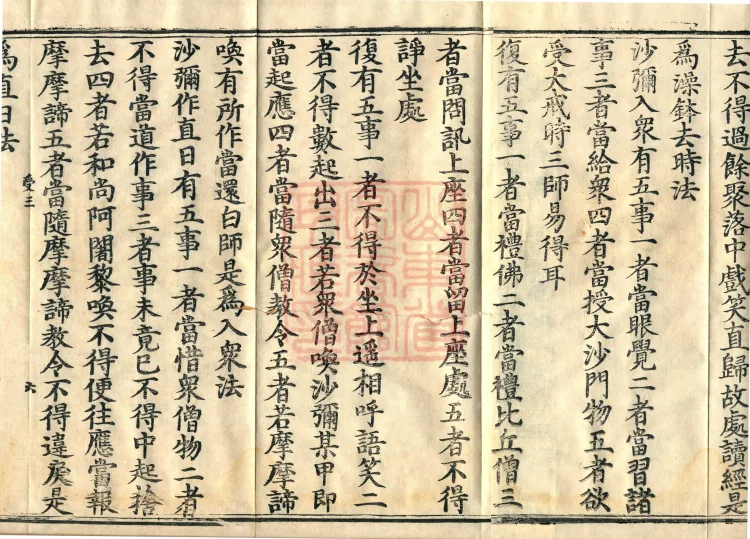 去不得過餘聚落中戲笑直歸故處讀經是
爲澡鉢去時法
沙彌入衆有五事一者當眼覺二者當習諸
事三者當給衆四者當授大沙門物五者欲
受大戒時三師易得耳
復有五事一者當禮佛二者當禮比丘僧三
者當問訊上座四者當留上座處五者不得
諍坐處
復有五事一者不得於坐上遥相呼語笑二
者不得數起出三者若衆僧喚沙彌某甲即
當起應四者當隨衆僧教令五者若摩摩諦
喚有所作當還白師是爲入衆法
沙彌作直日有五事一者當惜衆僧物二者
不得當道作事三者事未竟已不得中起捨
去四者若和尚阿闍黎喚不得便往應當報
摩摩諦五者當隨摩摩諦教令不得違戾是
受三 六
爲直日法